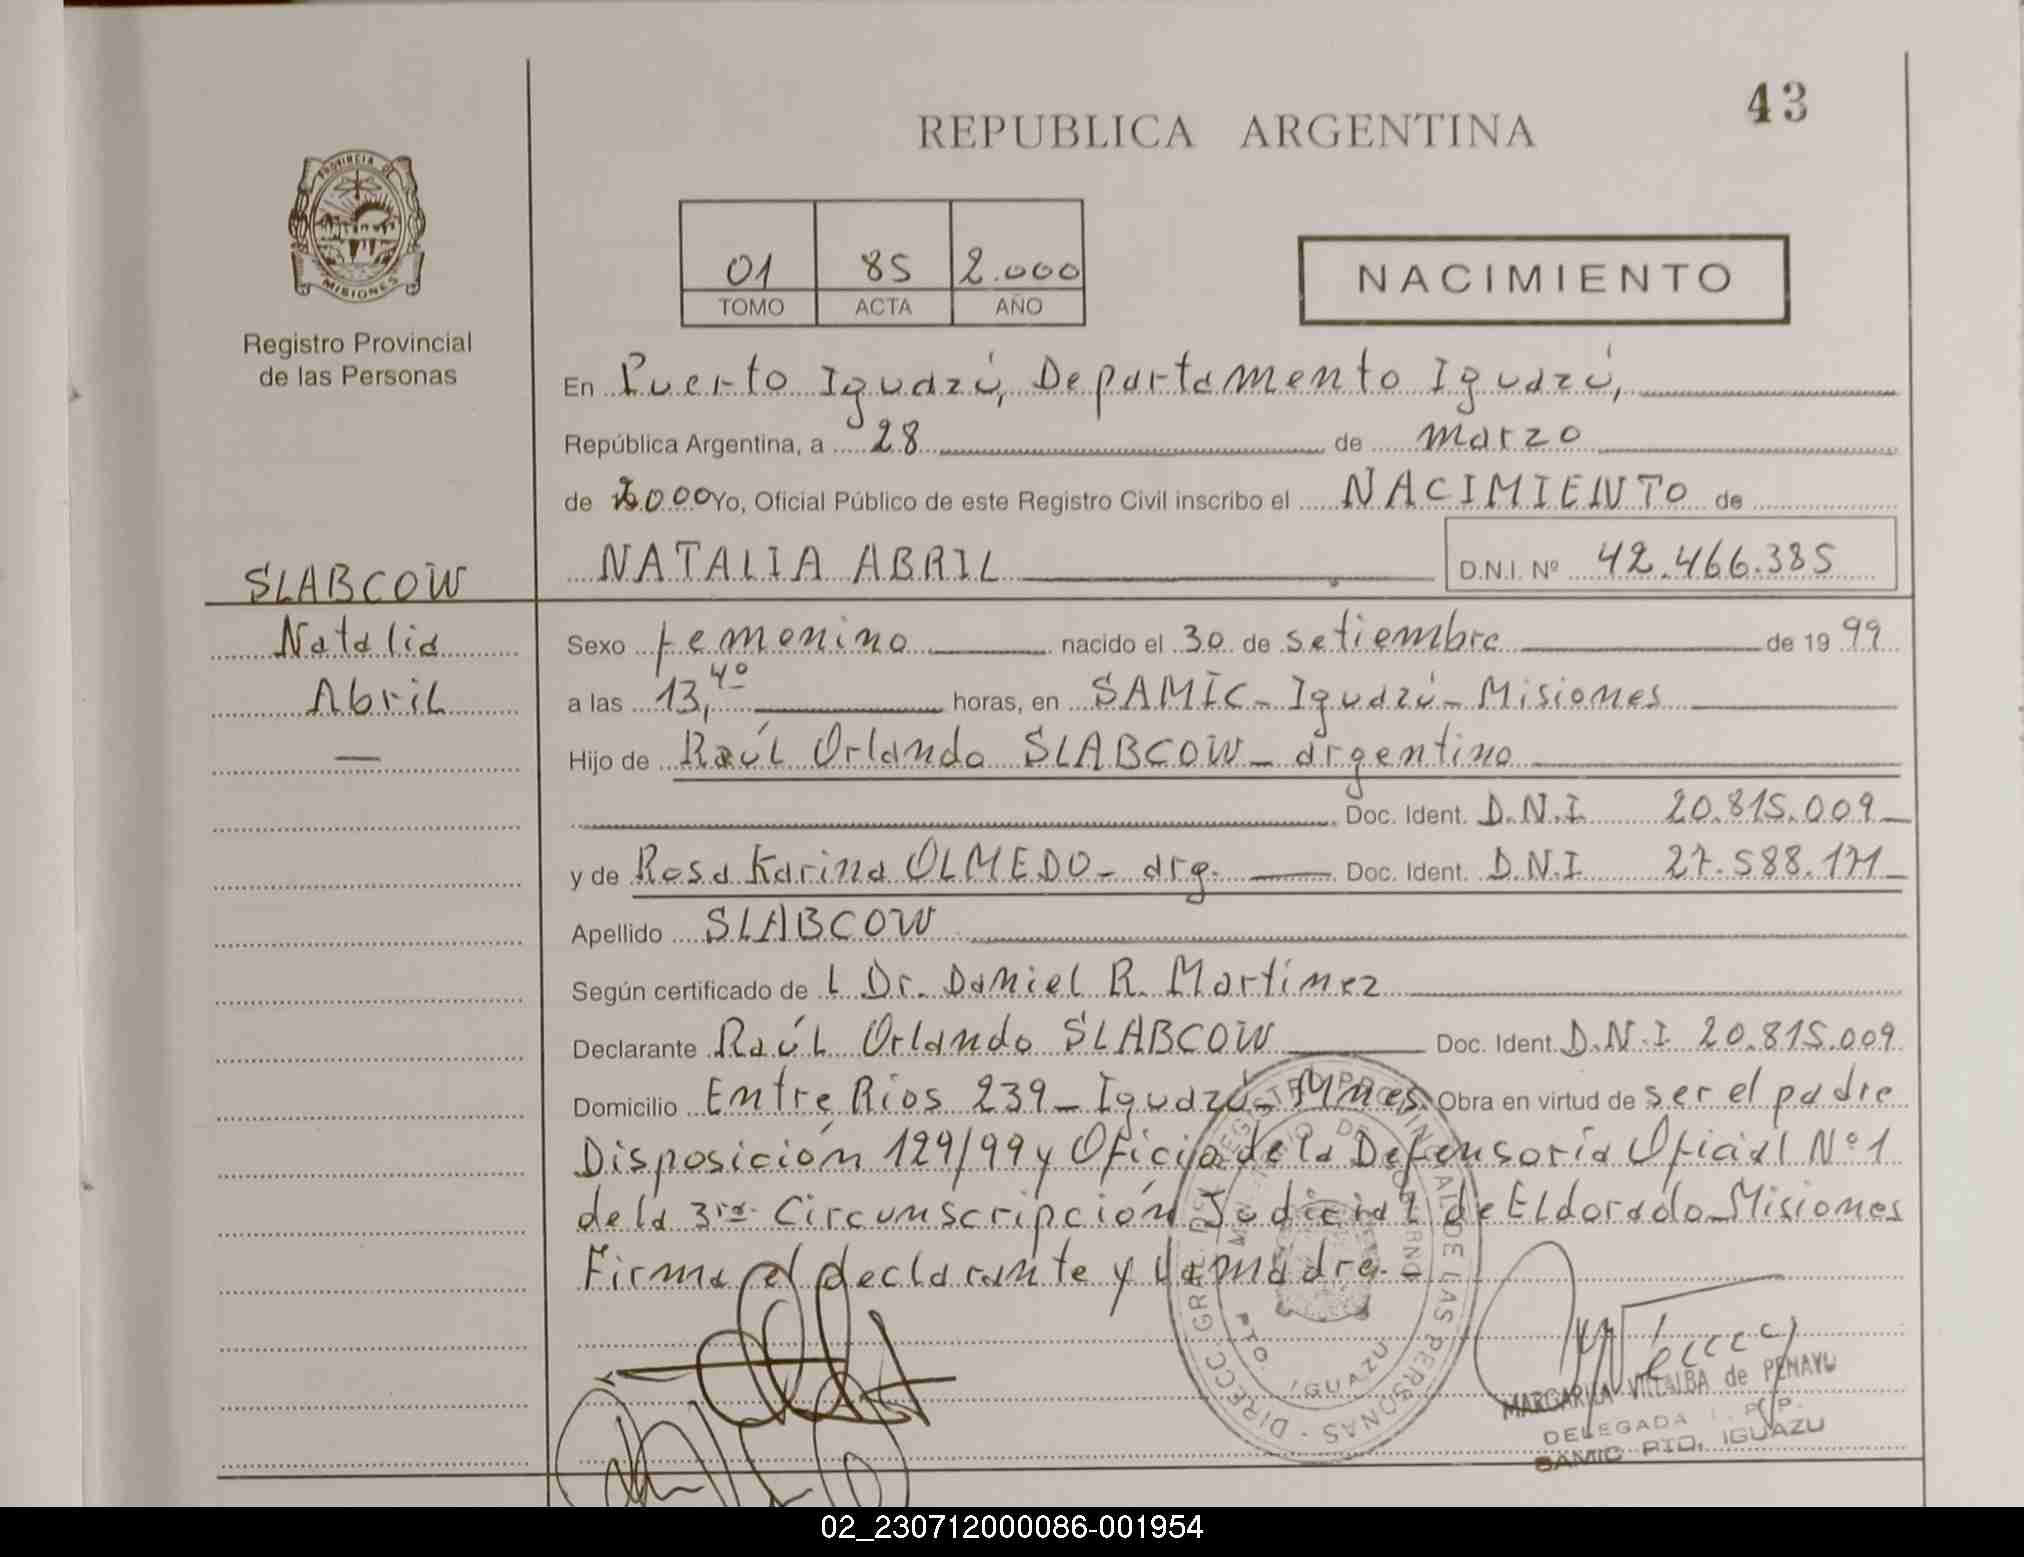 43
REPUBLICA ARGENTINA
PROVINCIA DE
MISIONES
Registro Provincial
de las Personas
01 85 2.000
TOMO ACTA AÑO
NACIMIENTO
En Puerto Iguazú, Departamento Iguazú,
República Argentina, a 28 de marzo
de 2000 Yo, Oficial Público de este Registro Civil inscribo el NACIMIENTO de
NATALIA ABRIL D.N.I. Nº 42.466.385
SLABCOW
Natalia
Abril
—
Sexo femenino nacido el 30 de setiembre de 1999
a las 13,40 horas, en SAMIC - Iguazú - Misiones
Hijo de Raúl Orlando SLABCOW - argentino
Doc. Ident. D.N.I 20.815.009
y de Rosa Karina OLMEDO - arg. Doc. Ident. D.N.I 27.588.171
Apellido SLABCOW
Según certificado de L Dr. Daniel R. Martinez
Declarante Raúl Orlando SLABCOW Doc. Ident. D.N.I 20.815.009
Domicilio Entre Rios 239 - Iguazú - Mnes. Obra en virtud de ser el padre
Disposición 129/99 y Oficio de la Defensoría Oficial Nº 1
de la 3ra. Circunscripción Judicial de Eldorado Misiones
Firma el declarante y la madre. -
DIRECC. GRAL. DEL REGISTRO PROVINCIAL DE LAS PERSONAS
MINISTERIO DE GOBIERNO
PTO. IGUAZU
MARGARITA VILLALBA de PENAYO
DELEGADA R. P. P.
SAMIC PTO. IGUAZU
02_230712000086-001954